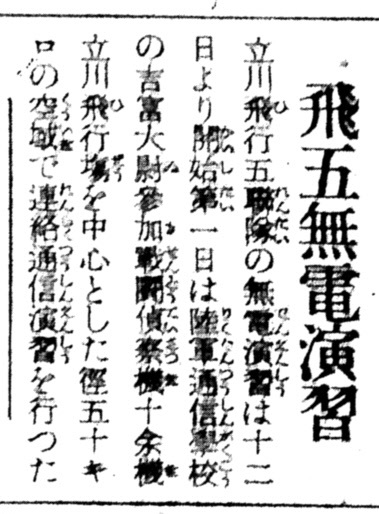 飛五無電演習
立川飛行五聯隊の無電演習は十二
日より開始第一日は陸軍通信學校
の吉富大尉參加戰鬪偵察機十余機
立川飛行場を中心とした徑五十キ
ロの空域で連絡通信演習を行つた